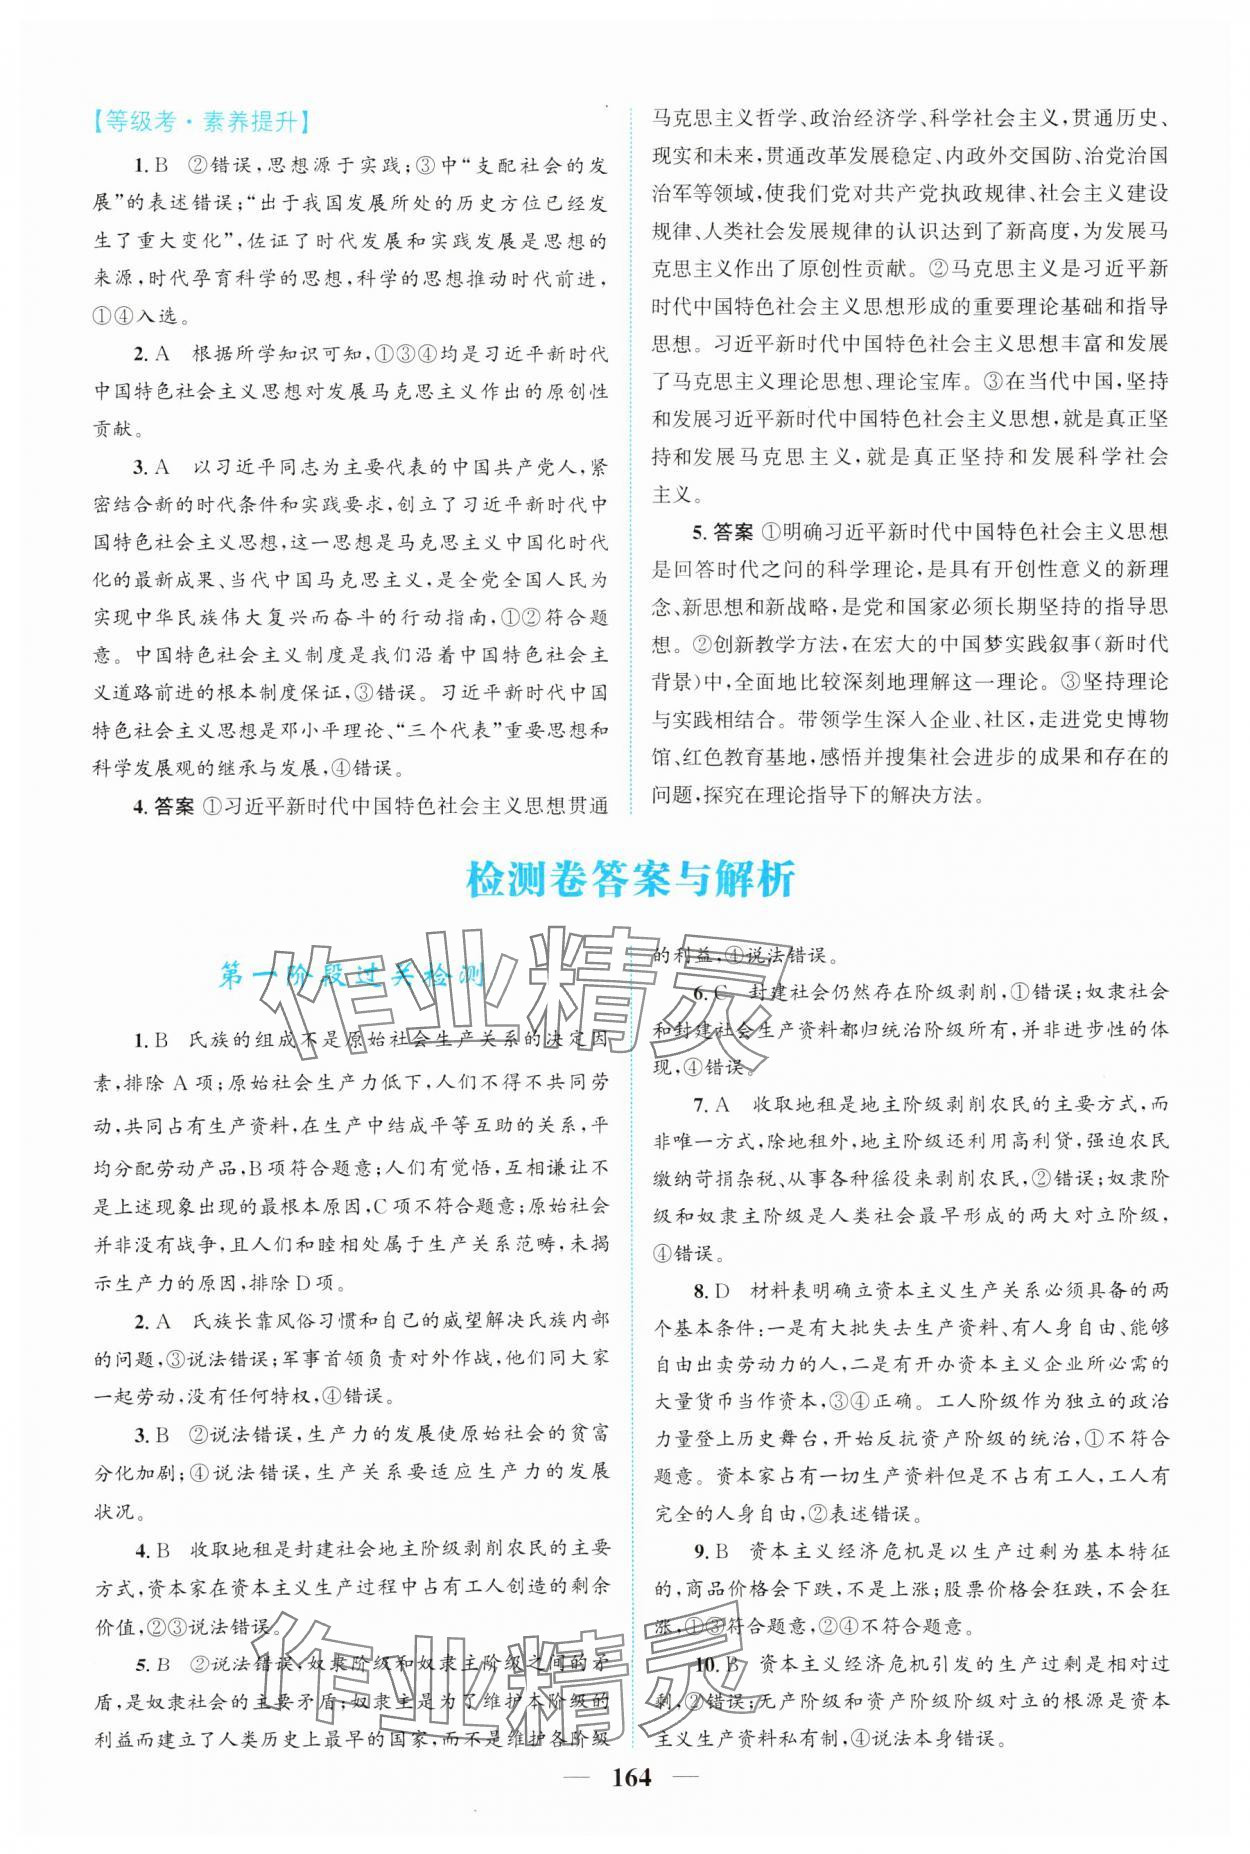 【等级考·素养提升】
1. B　②错误,思想源于实践;③中“支配社会的发
展”的表述错误;“出于我国发展所处的历史方位已经发
生了重大变化”,佐证了时代发展和实践发展是思想的
来源,时代孕育科学的思想,科学的思想推动时代前进,
①④入选。
2. A　根据所学知识可知,①③④均是习近平新时代
中国特色社会主义思想对发展马克思主义作出的原创性
贡献。
3. A　以习近平同志为主要代表的中国共产党人,紧
密结合新的时代条件和实践要求,创立了习近平新时代中
国特色社会主义思想,这一思想是马克思主义中国化时代
化的最新成果、当代中国马克思主义,是全党全国人民为
实现中华民族伟大复兴而奋斗的行动指南,①②符合题
意。中国特色社会主义制度是我们沿着中国特色社会主
义道路前进的根本制度保证,③错误。习近平新时代中国
特色社会主义思想是邓小平理论、“三个代表”重要思想
和科学发展观的继承与发展,④错误。
4. 答案 ①习近平新时代中国特色社会主义思想贯通
马克思主义哲学、政治经济学、科学社会主义,贯通历史、
现实和未来,贯通改革发展稳定、内政外交国防、治党治国
治军等领域,使我们党对共产党执政规律、社会主义建设
规律、人类社会发展规律的认识达到了新高度,为发展马
克思主义作出了原创性贡献。②马克思主义是习近平新
时代中国特色社会主义思想形成的重要理论基础和指导
思想。习近平新时代中国特色社会主义思想丰富和发展
了马克思主义理论思想、理论宝库。③在当代中国,坚持
和发展习近平新时代中国特色社会主义思想,就是真正坚
持和发展马克思主义,就是真正坚持和发展科学社会
主义。
5. 答案 ①明确习近平新时代中国特色社会主义思想
是回答时代之问的科学理论,是具有开创性意义的新理
念、新思想和新战略,是党和国家必须长期坚持的指导思
想。②创新教学方法,在宏大的中国梦实践叙事(新时代
背景)中,全面地比较深刻地理解这一理论。③坚持理论
与实践相结合。带领学生深入企业、社区,走进党史博物
馆、红色教育基地,感悟并搜集社会进步的成果和存在的
问题,探究在理论指导下的解决方法。
检测卷答案与解析
第一阶段过关检测
1. B　氏族的组成不是原始社会生产关系的决定因
素,排除 A 项;原始社会生产力低下,人们不得不共同劳
动,共同占有生产资料,在生产中结成平等互助的关系,平
均分配劳动产品,B项符合题意;人们有觉悟,互相谦让不
是上述现象出现的最根本原因,C 项不符合题意;原始社会
并非没有战争,且人们和睦相处属于生产关系范畴,未揭
示生产力的原因,排除 D 项。
2. A　氏族长靠风俗习惯和自己的威望解决氏族内部
的问题,③说法错误;军事首领负责对外作战,他们同大家
一起劳动,没有任何特权,④错误。
3. B　②说法错误,生产力的发展使原始社会的贫富
分化加剧;④说法错误,生产关系要适应生产力的发展
状况。
4. B　收取地租是封建社会地主阶级剥削农民的主要
方式,资本家在资本主义生产过程中占有工人创造的剩余
价值,②③说法错误。
5. B　②说法错误,奴隶阶级和奴隶主阶级之间的矛
盾,是奴隶社会的主要矛盾;奴隶主是为了维护本阶级的
利益而建立了人类历史上最早的国家,而不是维护各阶级
的利益,④说法错误。
6. C　封建社会仍然存在阶级剥削,①错误;奴隶社会
和封建社会生产资料都归统治阶级所有,并非进步性的体
现,④错误。
7. A　收取地租是地主阶级剥削农民的主要方式,而
非唯一方式,除地租外,地主阶级还利用高利贷,强迫农民
缴纳苛捐杂税、从事各种徭役来剥削农民,②错误;奴隶阶
级和奴隶主阶级是人类社会最早形成的两大对立阶级,
④错误。
8. D　材料表明确立资本主义生产关系必须具备的两
个基本条件:一是有大批失去生产资料、有人身自由、能够
自由出卖劳动力的人,二是有开办资本主义企业所必需的
大量货币当作资本,③④正确。工人阶级作为独立的政治
力量登上历史舞台,开始反抗资产阶级的统治,①不符合
题意。资本家占有一切生产资料但是不占有工人,工人有
完全的人身自由,②表述错误。
9. B　资本主义经济危机是以生产过剩为基本特征
的,商品价格会下跌,不是上涨;股票价格会狂跌,不会狂
涨,①③符合题意,②④不符合题意。
10. B　资本主义经济危机引发的生产过剩是相对过
剩,②错误;无产阶级和资产阶级阶级对立的根源是资本
主义生产资料私有制,④说法本身错误。
作业精灵
作业精灵
— 164 —